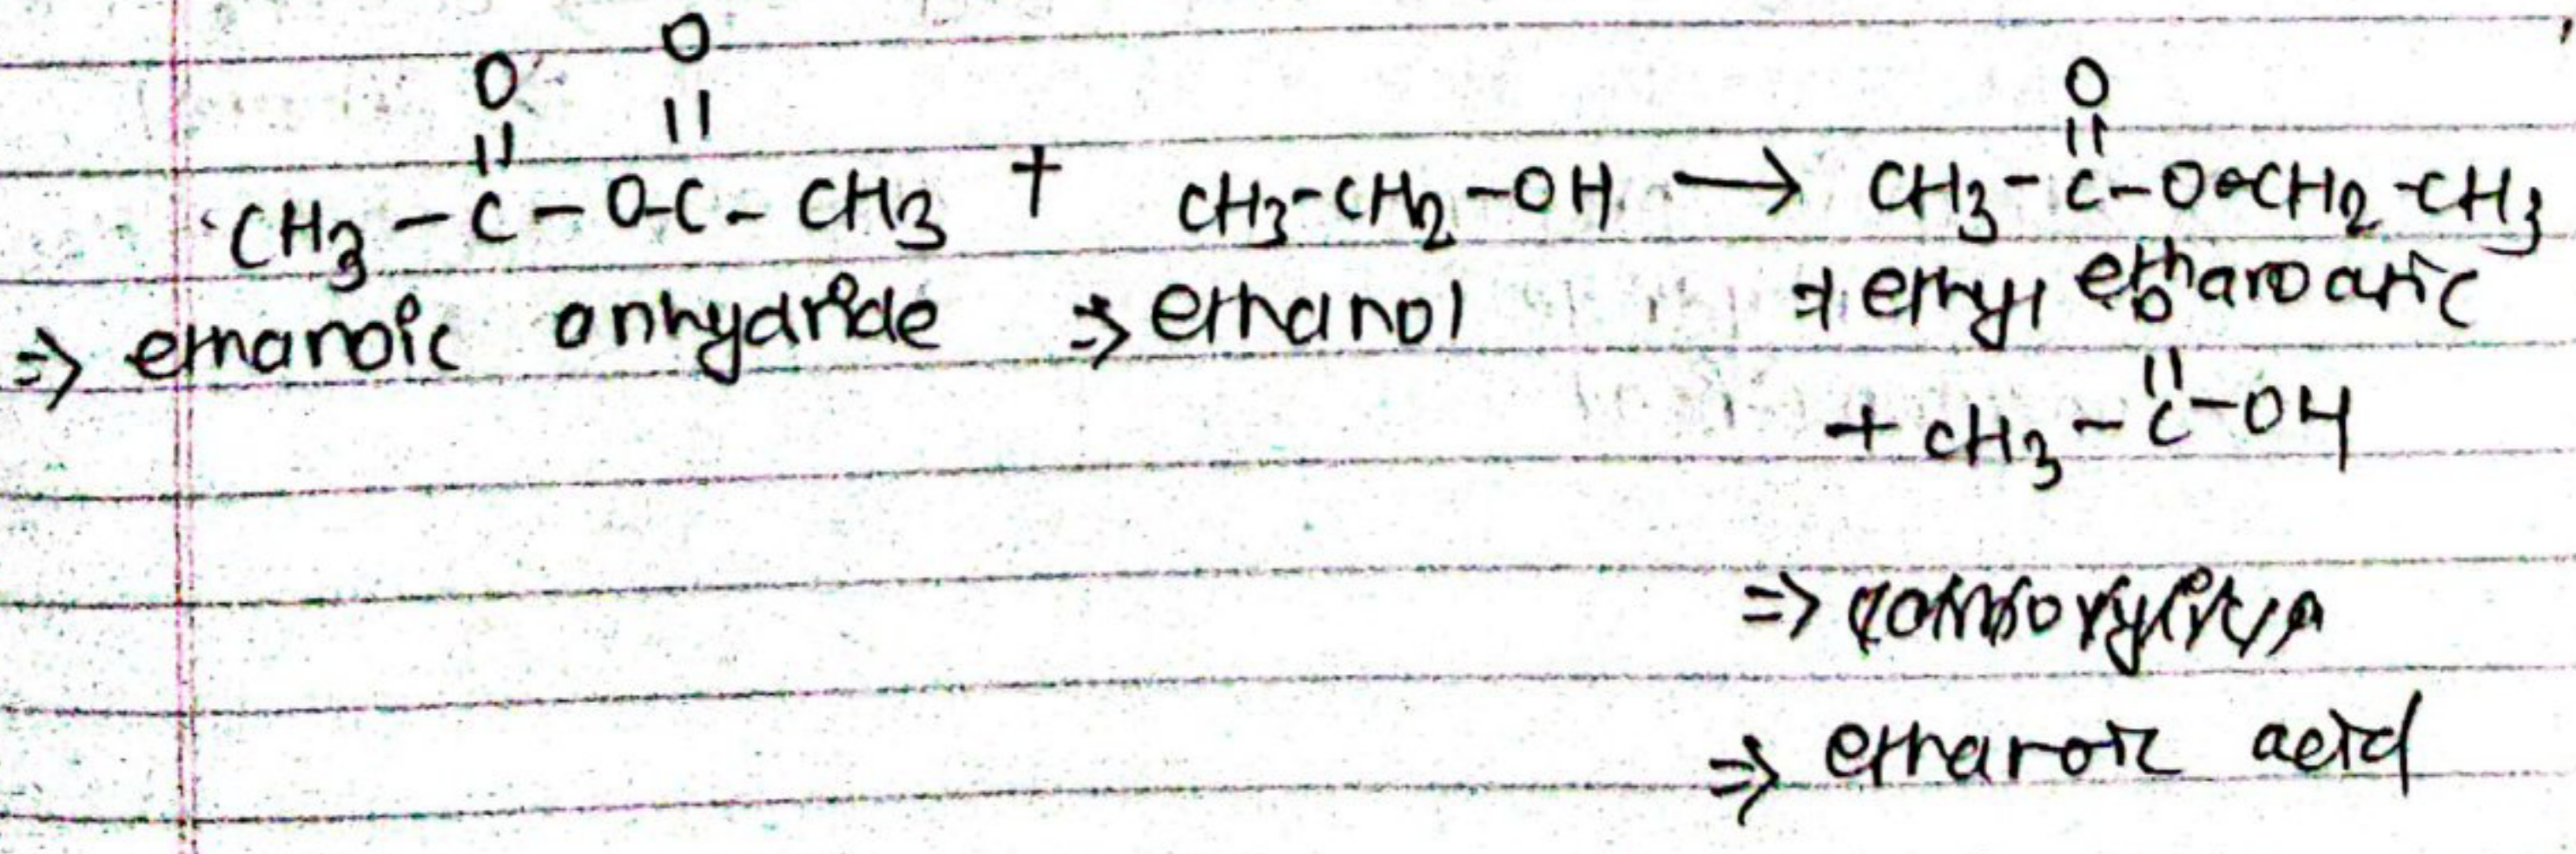 O O O
|| || ||
CH3 - C - O-C - CH3 + CH3-CH2-OH → CH3-C-O-CH2-CH3
⇒ ethanoic anhydride ⇒ ethanol ⇒ ethyl ethanoatic
O
||
+ CH3 - C-OH
⇒
⇒ ethanoic acid